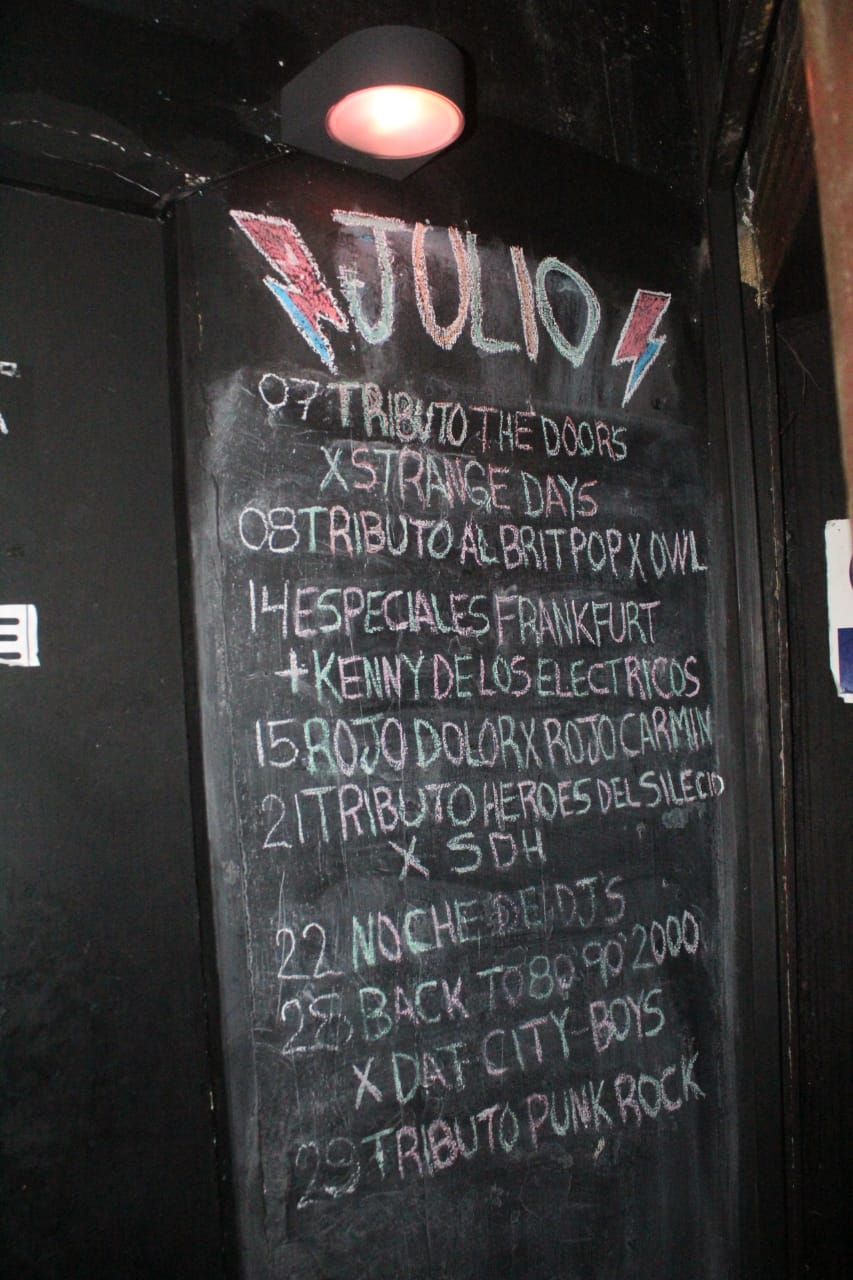 JULIO
07 TRIBUTO THE DOORS
X STRANGE DAYS
08 TRIBUTO AL BRIT POP X OWL
14 ESPECIALES FRANKFURT
+ KENNY DE LOS ELECTRICOS
15 ROJO DOLOR X ROJO CARMIN
21 TRIBUTO HEROES DEL SILECIO
X SDH
22 NOCHE DE DJ'S
28 BACK TO 80'90'2000
X DAT CITY BOYS
29 TRIBUTO PUNK ROCK